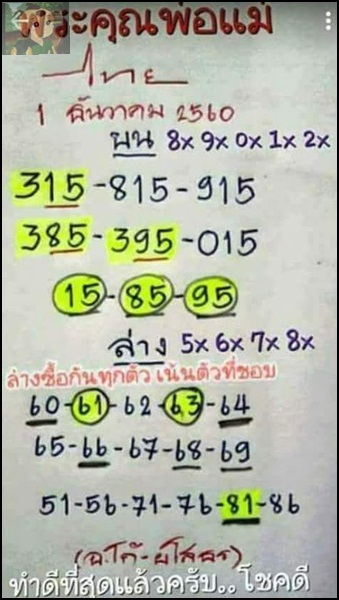 พระคุณพ่อแม่
ไทย
1 ธันวาคม 2560
บน 8x 9x 0x 1x 2x
315-815-915
385-395-015
15-85-95
ล่าง 5x 6x 7x 8x
ล่างซื้อกันทุกตัว เน้นตัวที่ชอบ
60-61-62-63-64
65-66-67-68-69
51-56-71-76-81-86
ทำดีที่สุดแล้วครับ..โชคดี